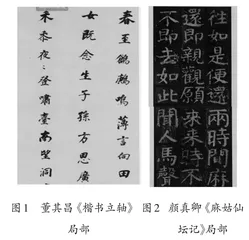 春至鶬鶊鳴薄言向田
女既念生子孫方思廣
禾黍夜々登嘯臺南望洞
往如是便還兩時間麻
還即親觀願來來時不
不即去如此聞人馬聲
图1 董其昌《楷书立轴》
局部
图2 颜真卿《麻姑仙
坛记》局部